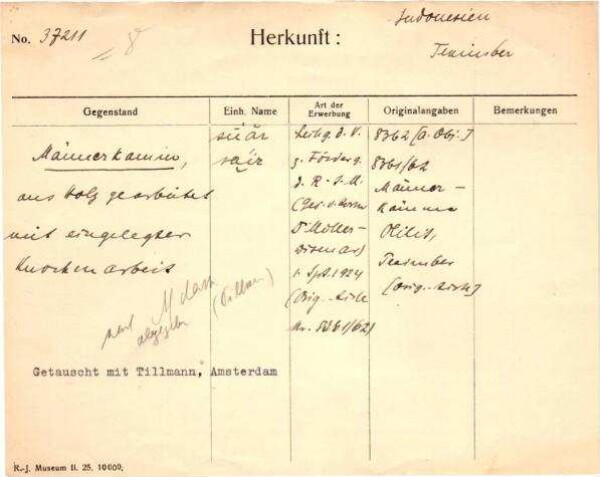 No. 37211
Herkunft:
Indonesien
Tenimber
Gegenstand
Einh. Name
Art der Erwerbung
Originalangaben
Bemerkungen
Männerkamm,
aus Holz gearbeitet
mit eingelegter
Knochenarbeit
sŭăr
saīr
Leihg. d. V.
z. Förderg.
d. R-J-M.
(Ges. v. Herrn
Dr. Möller-
Dismar)
1. Spt. 1924
(Orig.-Liste
Nr. 8361/62)
8362 [a. Obj.]
8361/62
Männer-
kämme
Olilit,
Tenimber
[Orig.-Liste]
abgegeben
(Tillman)
Getauscht mit Tillmann, Amsterdam
R.-J. Museum II. 25. 10000.